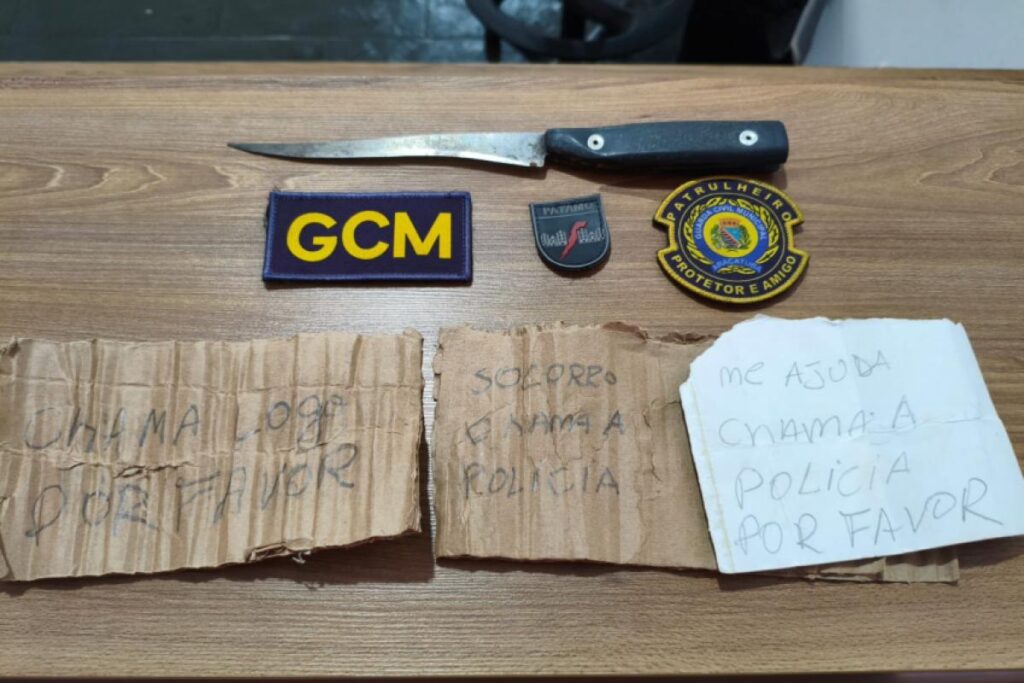 GCM
PATAMO
PATRULHEIRO
GUARDA CIVIL MUNICIPAL
ARAÇATUBA
PROTETOR E AMIGO
CHAMA LOGO
POR FAVOR
SOCORRO
CHAMA A
POLICIA
me AJUDA
CHAMA A
POLICIA
POR FAVOR